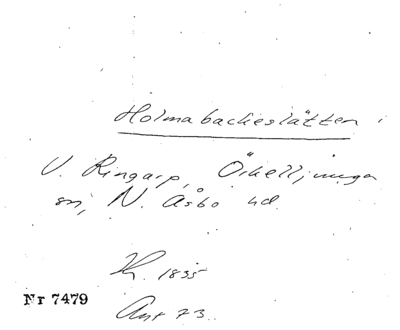 Holmabackeslätten i
V. Ringarp, Örkelljunga
sn, N. Åsbo hd.
K. 1835
Nr 7479
Akt 73.